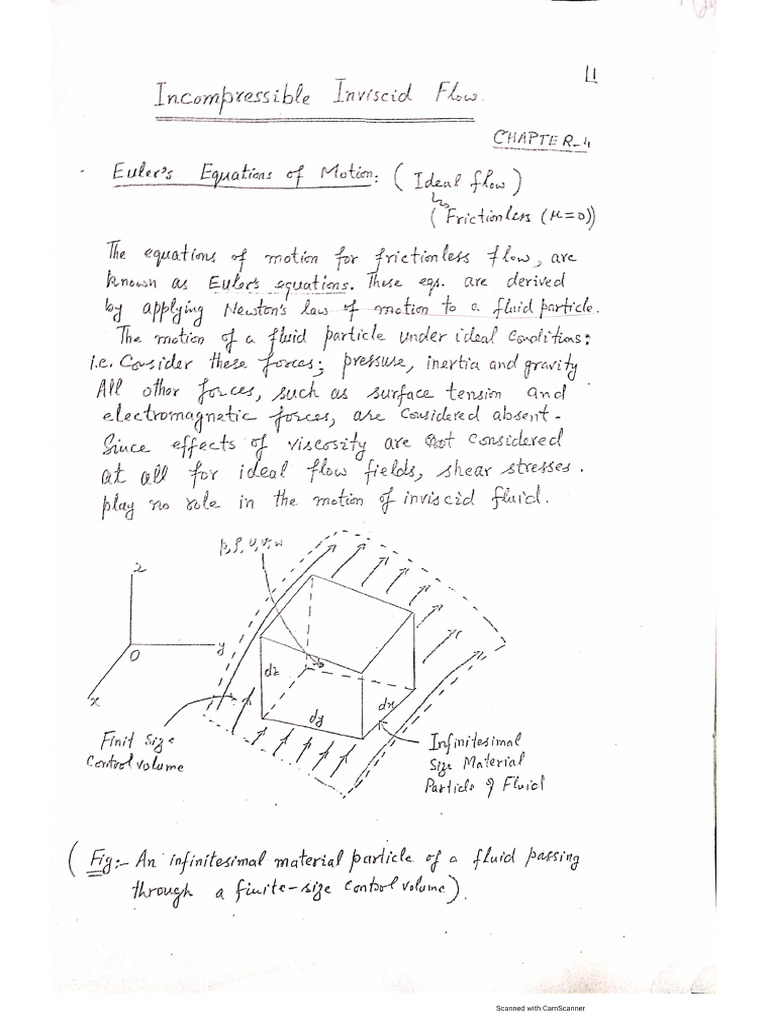 4
Incompressible Inviscid Flow.
CHAPTER-4
Euler's Equations of Motion: (Ideal flow)
(Frictionless (μ=0))
The equations of motion for frictionless flow, are
known as Euler's equations. These eqs. are derived
by applying Newton's law of motion to a fluid particle.
The motion of a fluid particle under ideal conditions:
i.e. Consider these forces; pressure, inertia and gravity
All other forces, such as surface tension and
electromagnetic forces, are considered absent.
Since effects of viscosity are not considered
at all for ideal flow fields, shear stresses.
play no role in the motion of inviscid fluid.
p, ρ, u, v, w
z
y
O
x
dz
dx
dy
Finit Size
Control volume
Infinitesimal
Size Material
Particle of Fluid
(Fig:- An infinitesimal material particle of a fluid passing
through a finite-size control volume).
Scanned with CamScanner